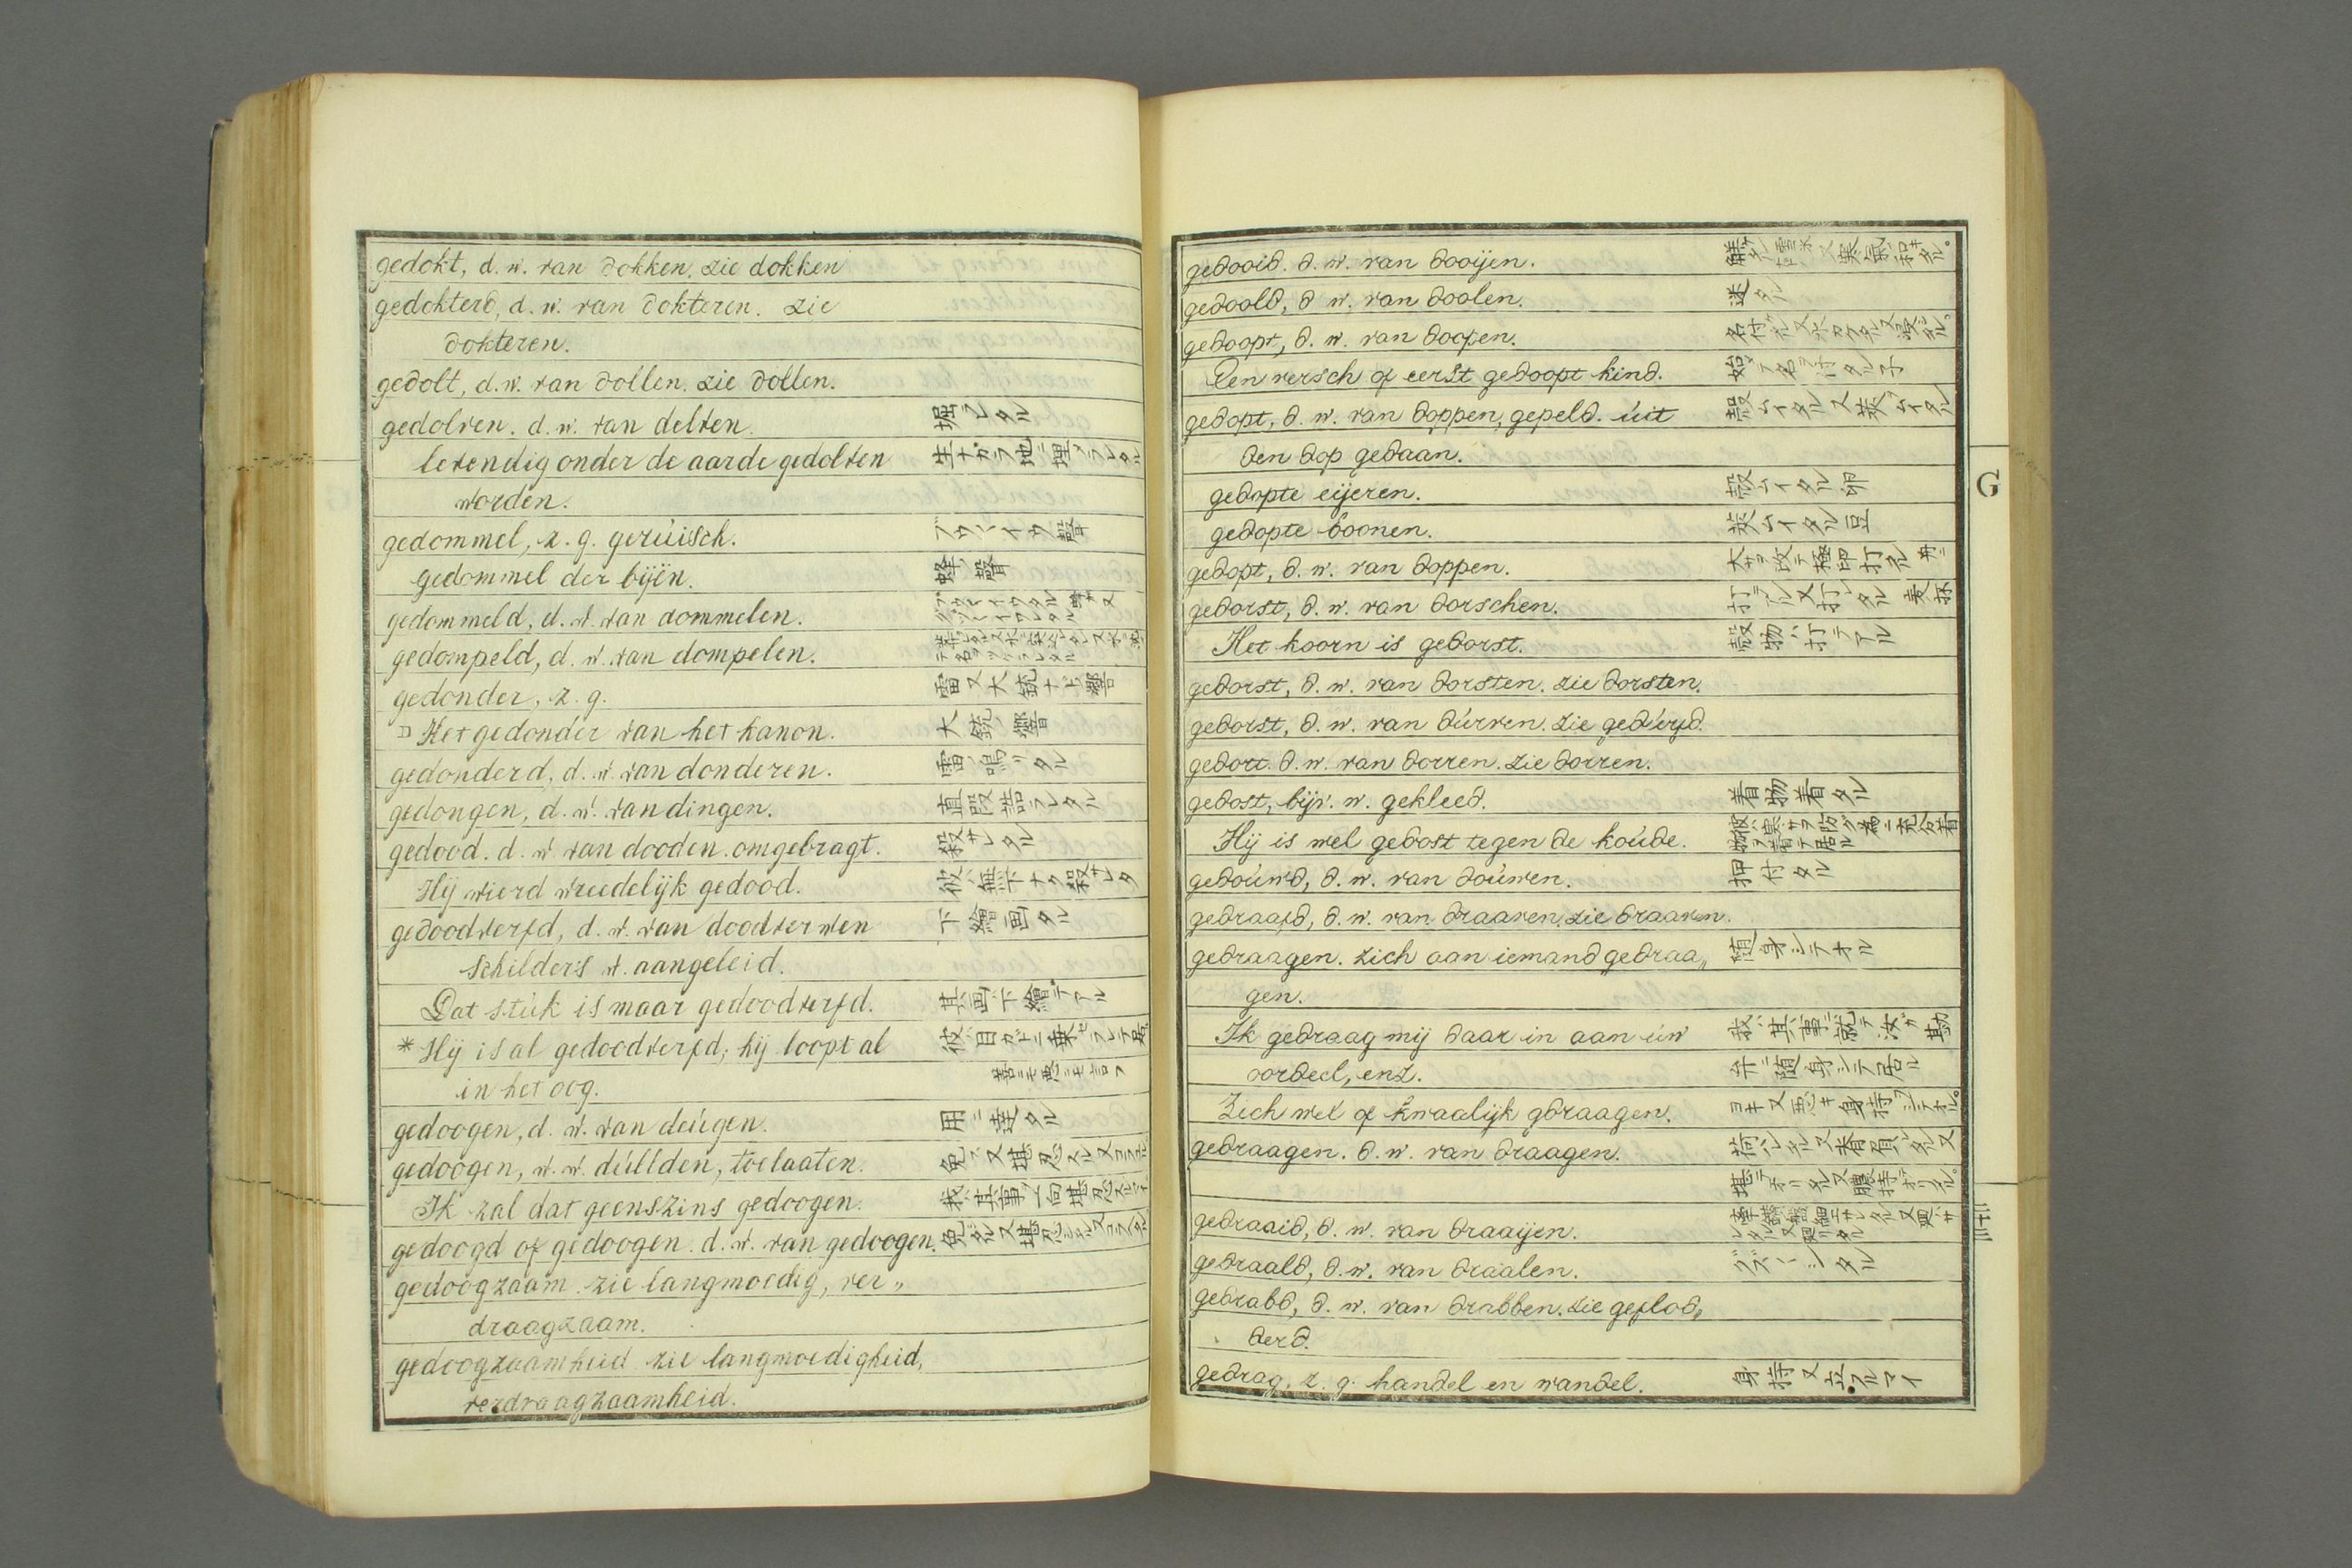 gedokt, d. w. van dokken. zie dokken
gedokterd, d. w. van dokteren. zie
dokteren.
gedolt, d. w. van dollen. zie dollen.
gedolven. d. w. van delven. 堀ラレタル
levendig onder de aarde gedolven 生ナガラ地ニ埋メラレタル
worden.
gedommel, z. g. gerúisch. ブウ〳〵イウ聲
gedommel der bijën. 蜂ノ聲
gedommeld, d. w. van dommelen.
gedompeld, d. w. van dompelen.
gedonder, z. g. 雷又大銃ナドノ響
Het gedonder van het kanon. 大銃ノ響
gedonderd, d. w. van donderen. 雷ノ鳴リタル
gedongen, d. w. van dingen. 直段諮ラレタル
gedood. d. w. van dooden. omgebragt. 殺サレタル
Hij wierd wreedelijk gedood. 彼ハ無下ナク殺サレタ
gedoodverfd, d. w. van doodverwen 下繪画タル
schilders w. aangeleid.
Dat stúk is maar gedoodverfd. 其画ハ下繪デアル
* Hij is al gedoodverfd; hij loopt al
in het oog. 善ニモ悪ニモ言フ
gedoogen, d. w. van deúgen. 用ニ達タル
gedoogen, w. w. dúllden, toelaaten.
Ik zal dat geenszins gedoogen.
gedoogd of gedoogen. d. w. van gedoogen.
gedoogzaam. zie langmoedig, ver„
draagzaam.
gedoogzaamheid zie langmoedigheid,
verdraagzaamheid.
gedooid. d. w. van dooijen.
gedoold, d w. van doolen. 迷タル
gedoopt, d. w. van doopen.
Een versch of eerst gedoopt kind. 始テ名ヲ付タル子
gedopt, d. w. van doppen, gepeld. úit 殻ムイタル又莢ムイタル
den dop gedaan.
gedopte eijeren. 殻ムイタル卵
gedopte boonen. 莢ムイタル豆
gedopt, d. w. van doppen.
gedorst, d. w. van dorschen.
Het koorn is gedorst. 殻物ハ打テアル
gedorst, d. w. van dorsten. zie dorsten.
gedorst, d. w. van dúrven. zie gedúrfd.
gedort. d. w. van dorren. zie dorren.
gedost, bijv. w. gekleed. 着物着タル
Hij is wel gedost tegen de koúde.
gedoúwd, d. w. van doúwen. 押付タル
gedraafd, d. w. van draaven. zie draaven.
gedraagen. zich aan iemand gedraa„ 随身シテオル
gen.
Ik gedraag mij daar in aan úw 我ハ其事ニ就テ汝ガ勘
oordeel, enz. 弁ニ随身シテ居ル
Zich wel of kwaalijk gdraagen. ヨキ又悪キ身持ヲシテオル。
gedraagen. d. w. van draagen.
gedraaid, d. w. van draaijen.
gedraald, d. w. van draalen. グズ〳〵シタル
gedrabd, d. w. van drabben. zie geflod„
derd.
gedrag, z. g. handel en wandel. 身持又立フルマイ
G